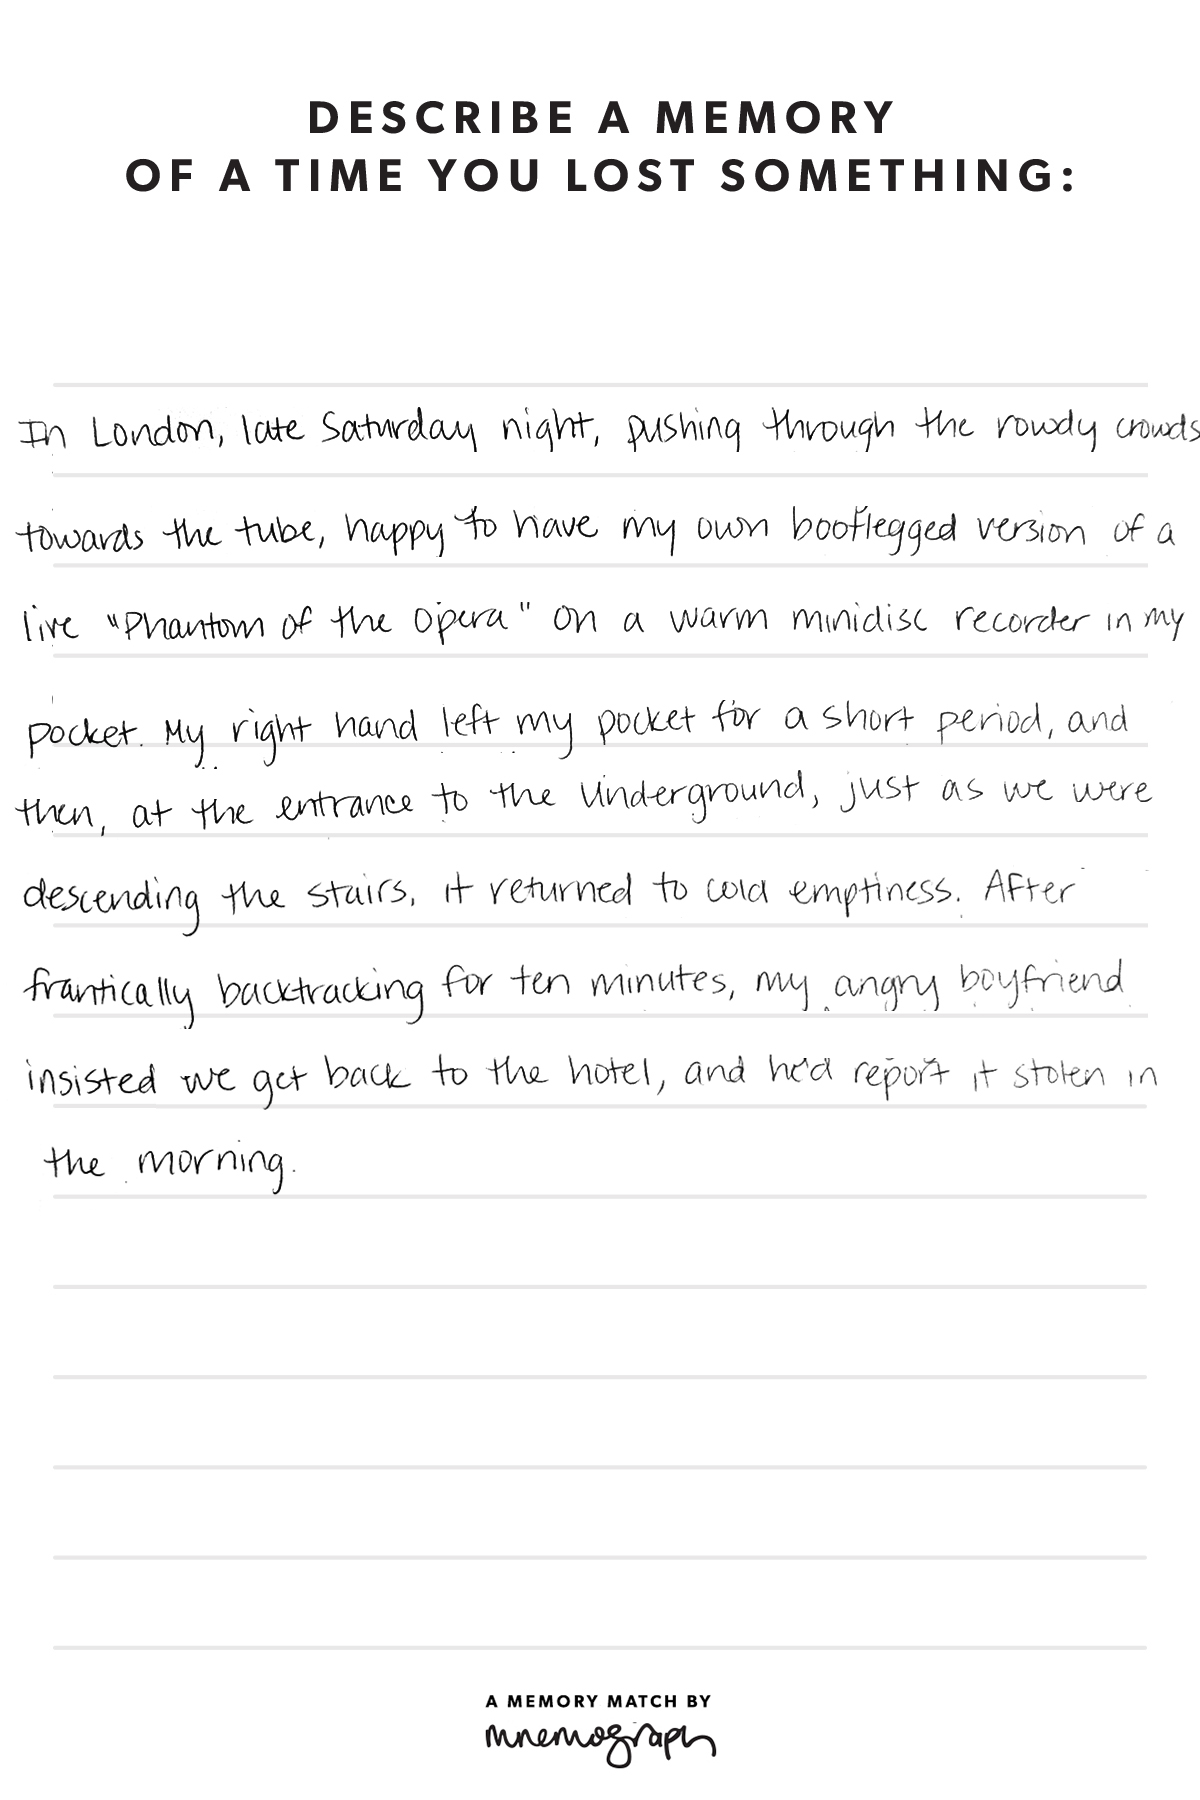 DESCRIBE A MEMORY
OF A TIME YOU LOST SOMETHING:
In London, late Saturday night, pushing through the rowdy crowds
towards the tube, happy to have my own bootlegged version of a
live "Phantom of the Opera" on a warm minidisc recorder in my
pocket. My right hand left my pocket for a short period, and
then, at the entrance to the Underground, just as we were
descending the stairs, it returned to cold emptiness. After
frantically backtracking for ten minutes, my angry boyfriend
insisted we get back to the hotel, and he'd report it stolen in
the morning.
A MEMORY MATCH BY
mnemograph